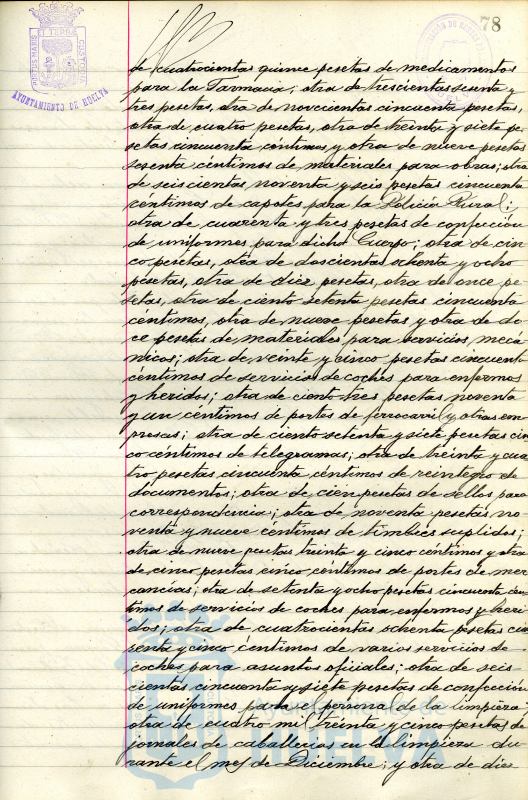 78
PORTUS MARIS ET TERRAE CUSTODIA
AYUNTAMIENTO DE HUELVA
de cuatrocientas quince pesetas de medicamentos
para la Farmacia; otra de trescientas sesenta y
tres pesetas, otra de novecientas cincuenta pesetas,
otra de cuatro pesetas, otra de treinta y siete pe
setas cincuenta céntimos y otra de nueve pesetas
sesenta céntimos de materiales para obras; otra
de seiscientas noventa y seis pesetas cincuenta
céntimos de capotes para la Policía Rural;
otra de cuarenta y tres pesetas de confección
de uniformes para dicho Cuerpo; otra de cin
co pesetas, otra de doscientas ochenta y ocho
pesetas, otra de diez pesetas, otra de once pe-
setas, otra de ciento setenta pesetas cincuenta
céntimos, otra de nueve pesetas y otra de do-
ce pesetas de materiales para servicios mecá
nicos; otra de veinte y cinco pesetas cincuenta
céntimos de servicio de coches para enfermos
y heridos; otra de ciento tres pesetas noventa
y un céntimos de portes de ferrocarril y otras em
presas; otra de ciento setenta y siete pesetas cin
co céntimos de telegramas; otra de treinta y cua
tro pesetas cincuenta céntimos de reintegro de
documentos; otra de cien pesetas de sellos para
correspondencia; otra de noventa pesetas no
venta y nueve céntimos de timbres suplidos;
otra de nueve pesetas treinta y cinco céntimos y otra
de cinco pesetas cinco céntimos de portes de mer
cancías; otra de setenta y ocho pesetas cincuenta cén
timos de servicios de coches para enfermos y heri
dos; otra de cuatrocientas ochenta pesetas cin
senta y cinco céntimos de varios servicios de
coches para asuntos oficiales; otra de seis
cientas cincuenta y siete pesetas de confección
de uniformes para el personal de la limpieza;
otra de cuatro mil treinta y cinco pesetas de
jornales de caballerías en la limpieza du
rante el mes de Diciembre; y otra de diez
HUELVA